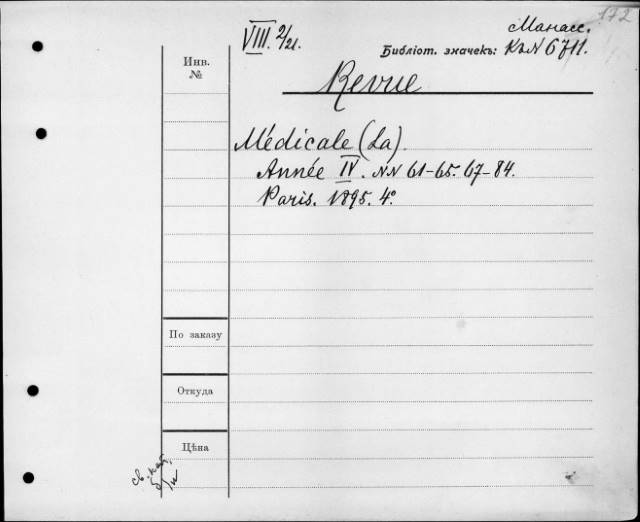 172
VIII. 2/21.
Манасс.
Библіот. значекъ: КъN 6711.
Инв.
№
Revue
Médicale (La).
Année IV. NN 61-65. 67-84.
Paris. 1895. 4º
По заказу
Откуда
Цѣна
св. кат.